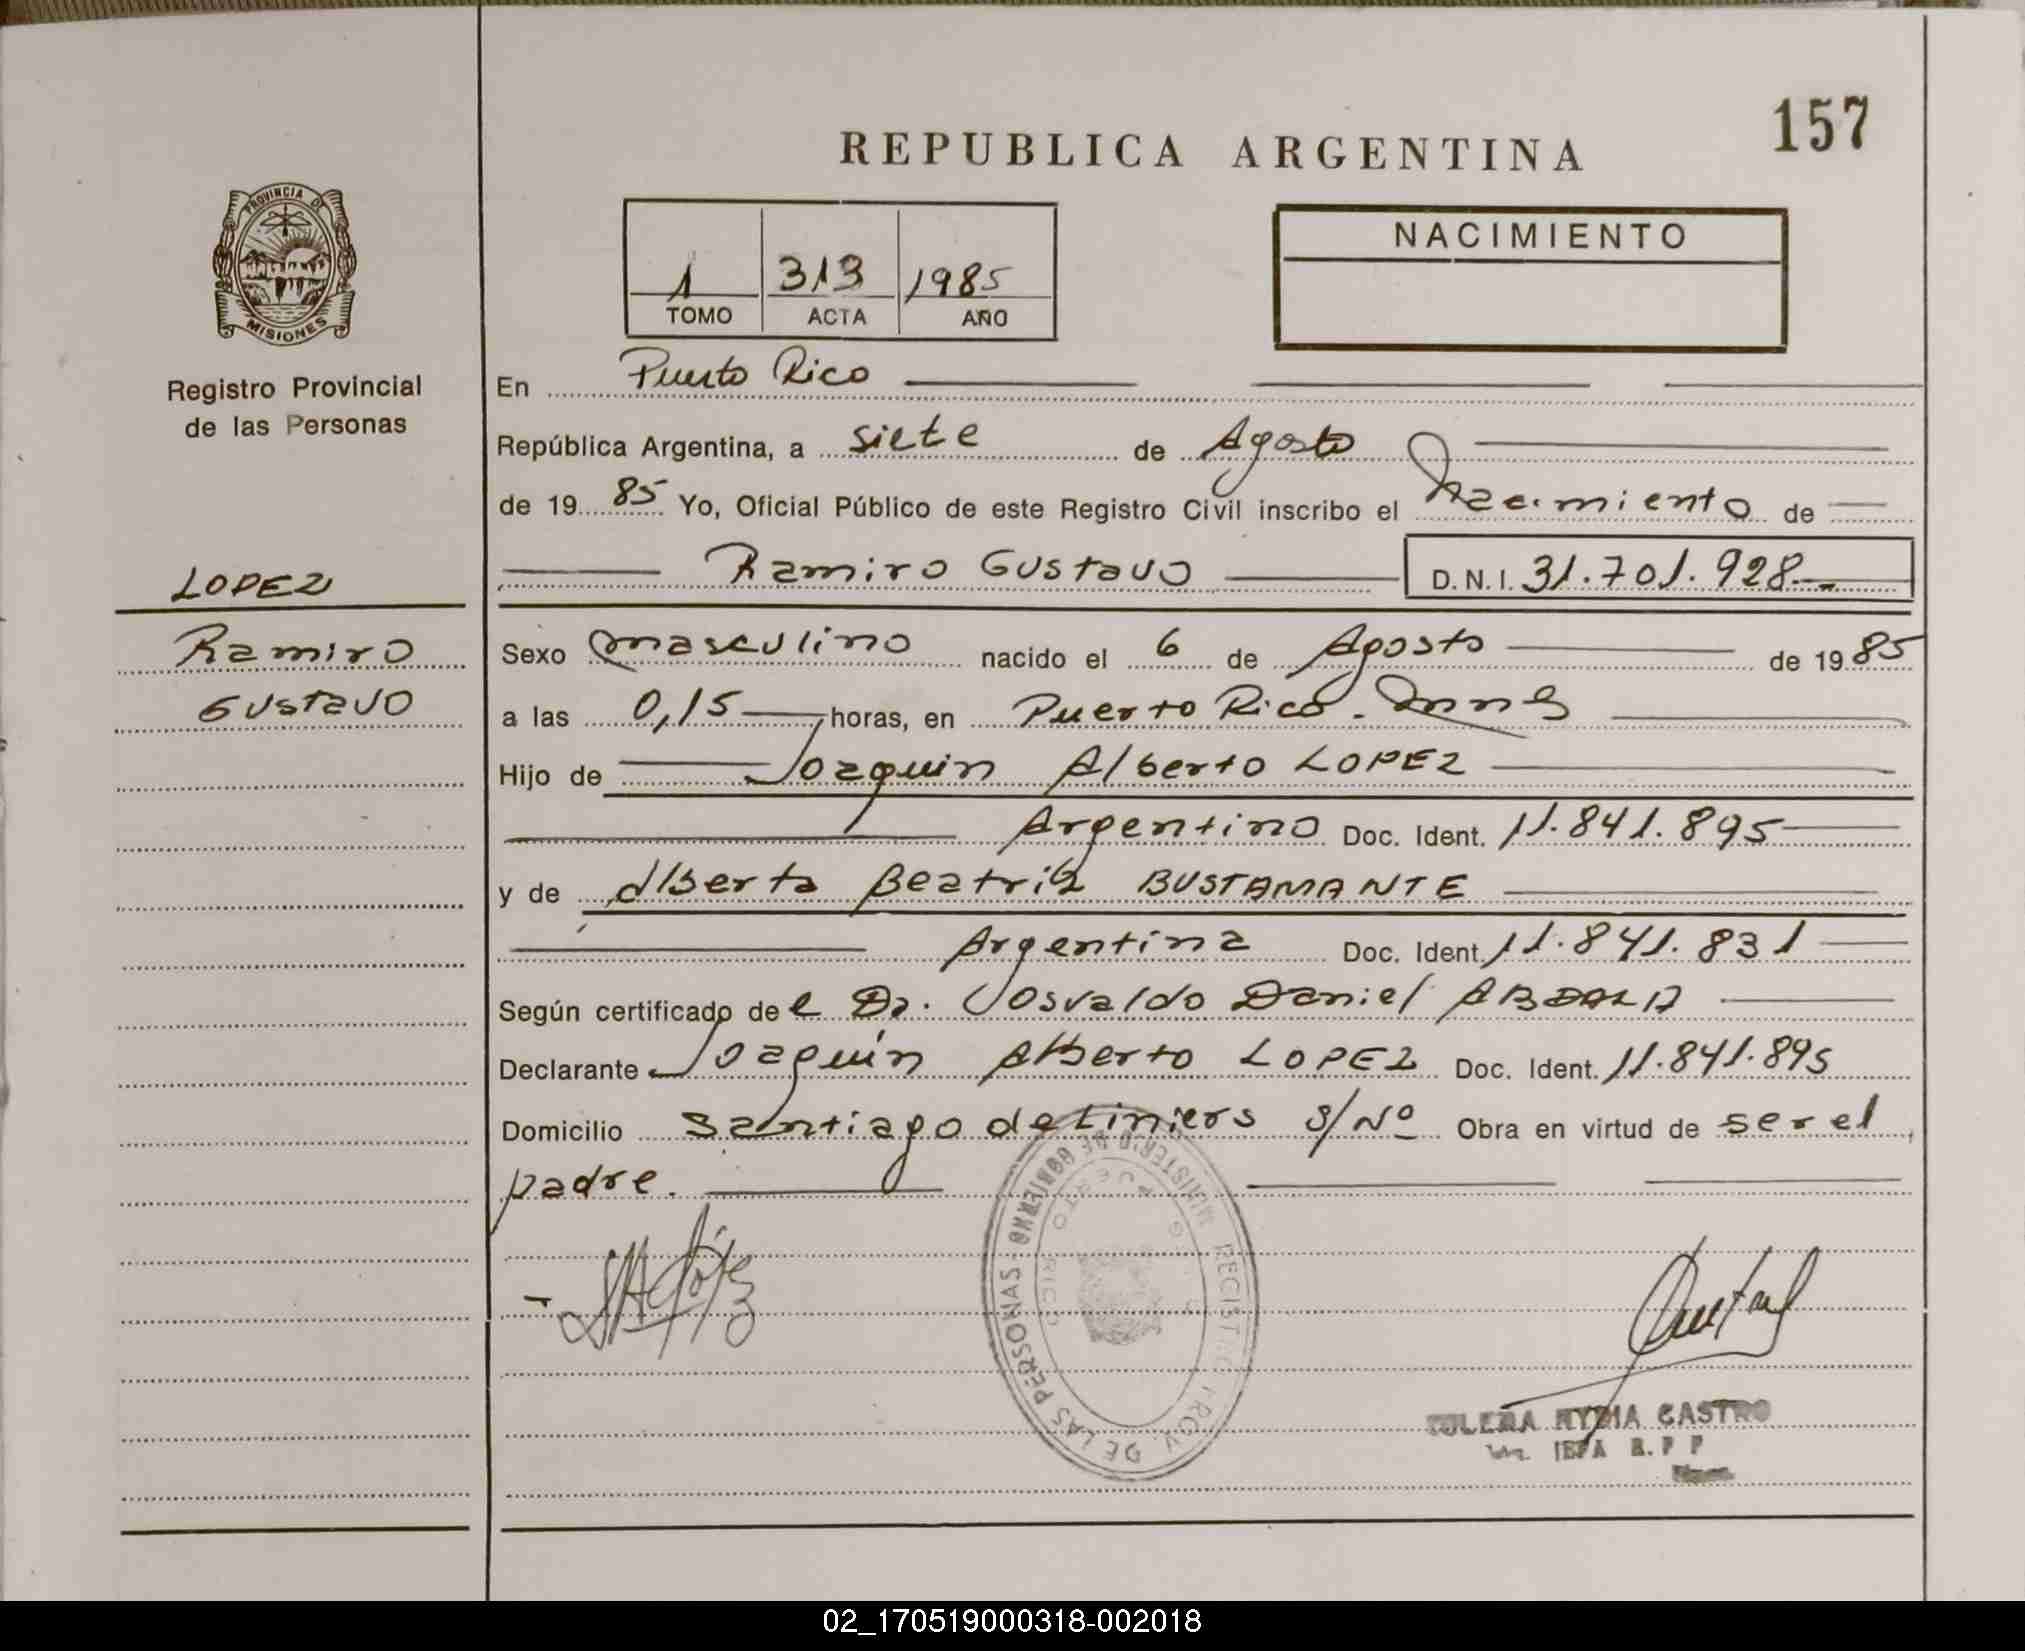 157
REPUBLICA ARGENTINA
PROVINCIA DE
MISIONES
Registro Provincial
de las Personas
1 313 1985
TOMO ACTA AÑO
NACIMIENTO
En Puerto Rico
República Argentina, a siete de Agosto
de 19 85 Yo, Oficial Público de este Registro Civil inscribo el Nacimiento de
Ramiro Gustavo D.N.I. 31.701.928.-
LOPEZ
Ramiro
Gustavo
Sexo masculino nacido el 6 de Agosto de 19 85
a las 0,15 horas, en Puerto Rico - Mnes
Hijo de Joaquin Alberto LOPEZ
Argentino Doc. Ident. 11.841.895
y de Alberta Beatriz BUSTAMANTE
Argentina Doc. Ident. 11.841.831
Según certificado de l Dr. Osvaldo Daniel ABDALA
Declarante Joaquín Alberto LOPEZ Doc. Ident. 11.841.895
Domicilio Santiago de Liniers S/Nº Obra en virtud de ser el
padre.
MINISTERIO DE GOBIERNO REGISTRO PROV. DE LAS PERSONAS
PUERTO RICO
CASTRO
02_170519000318-002018